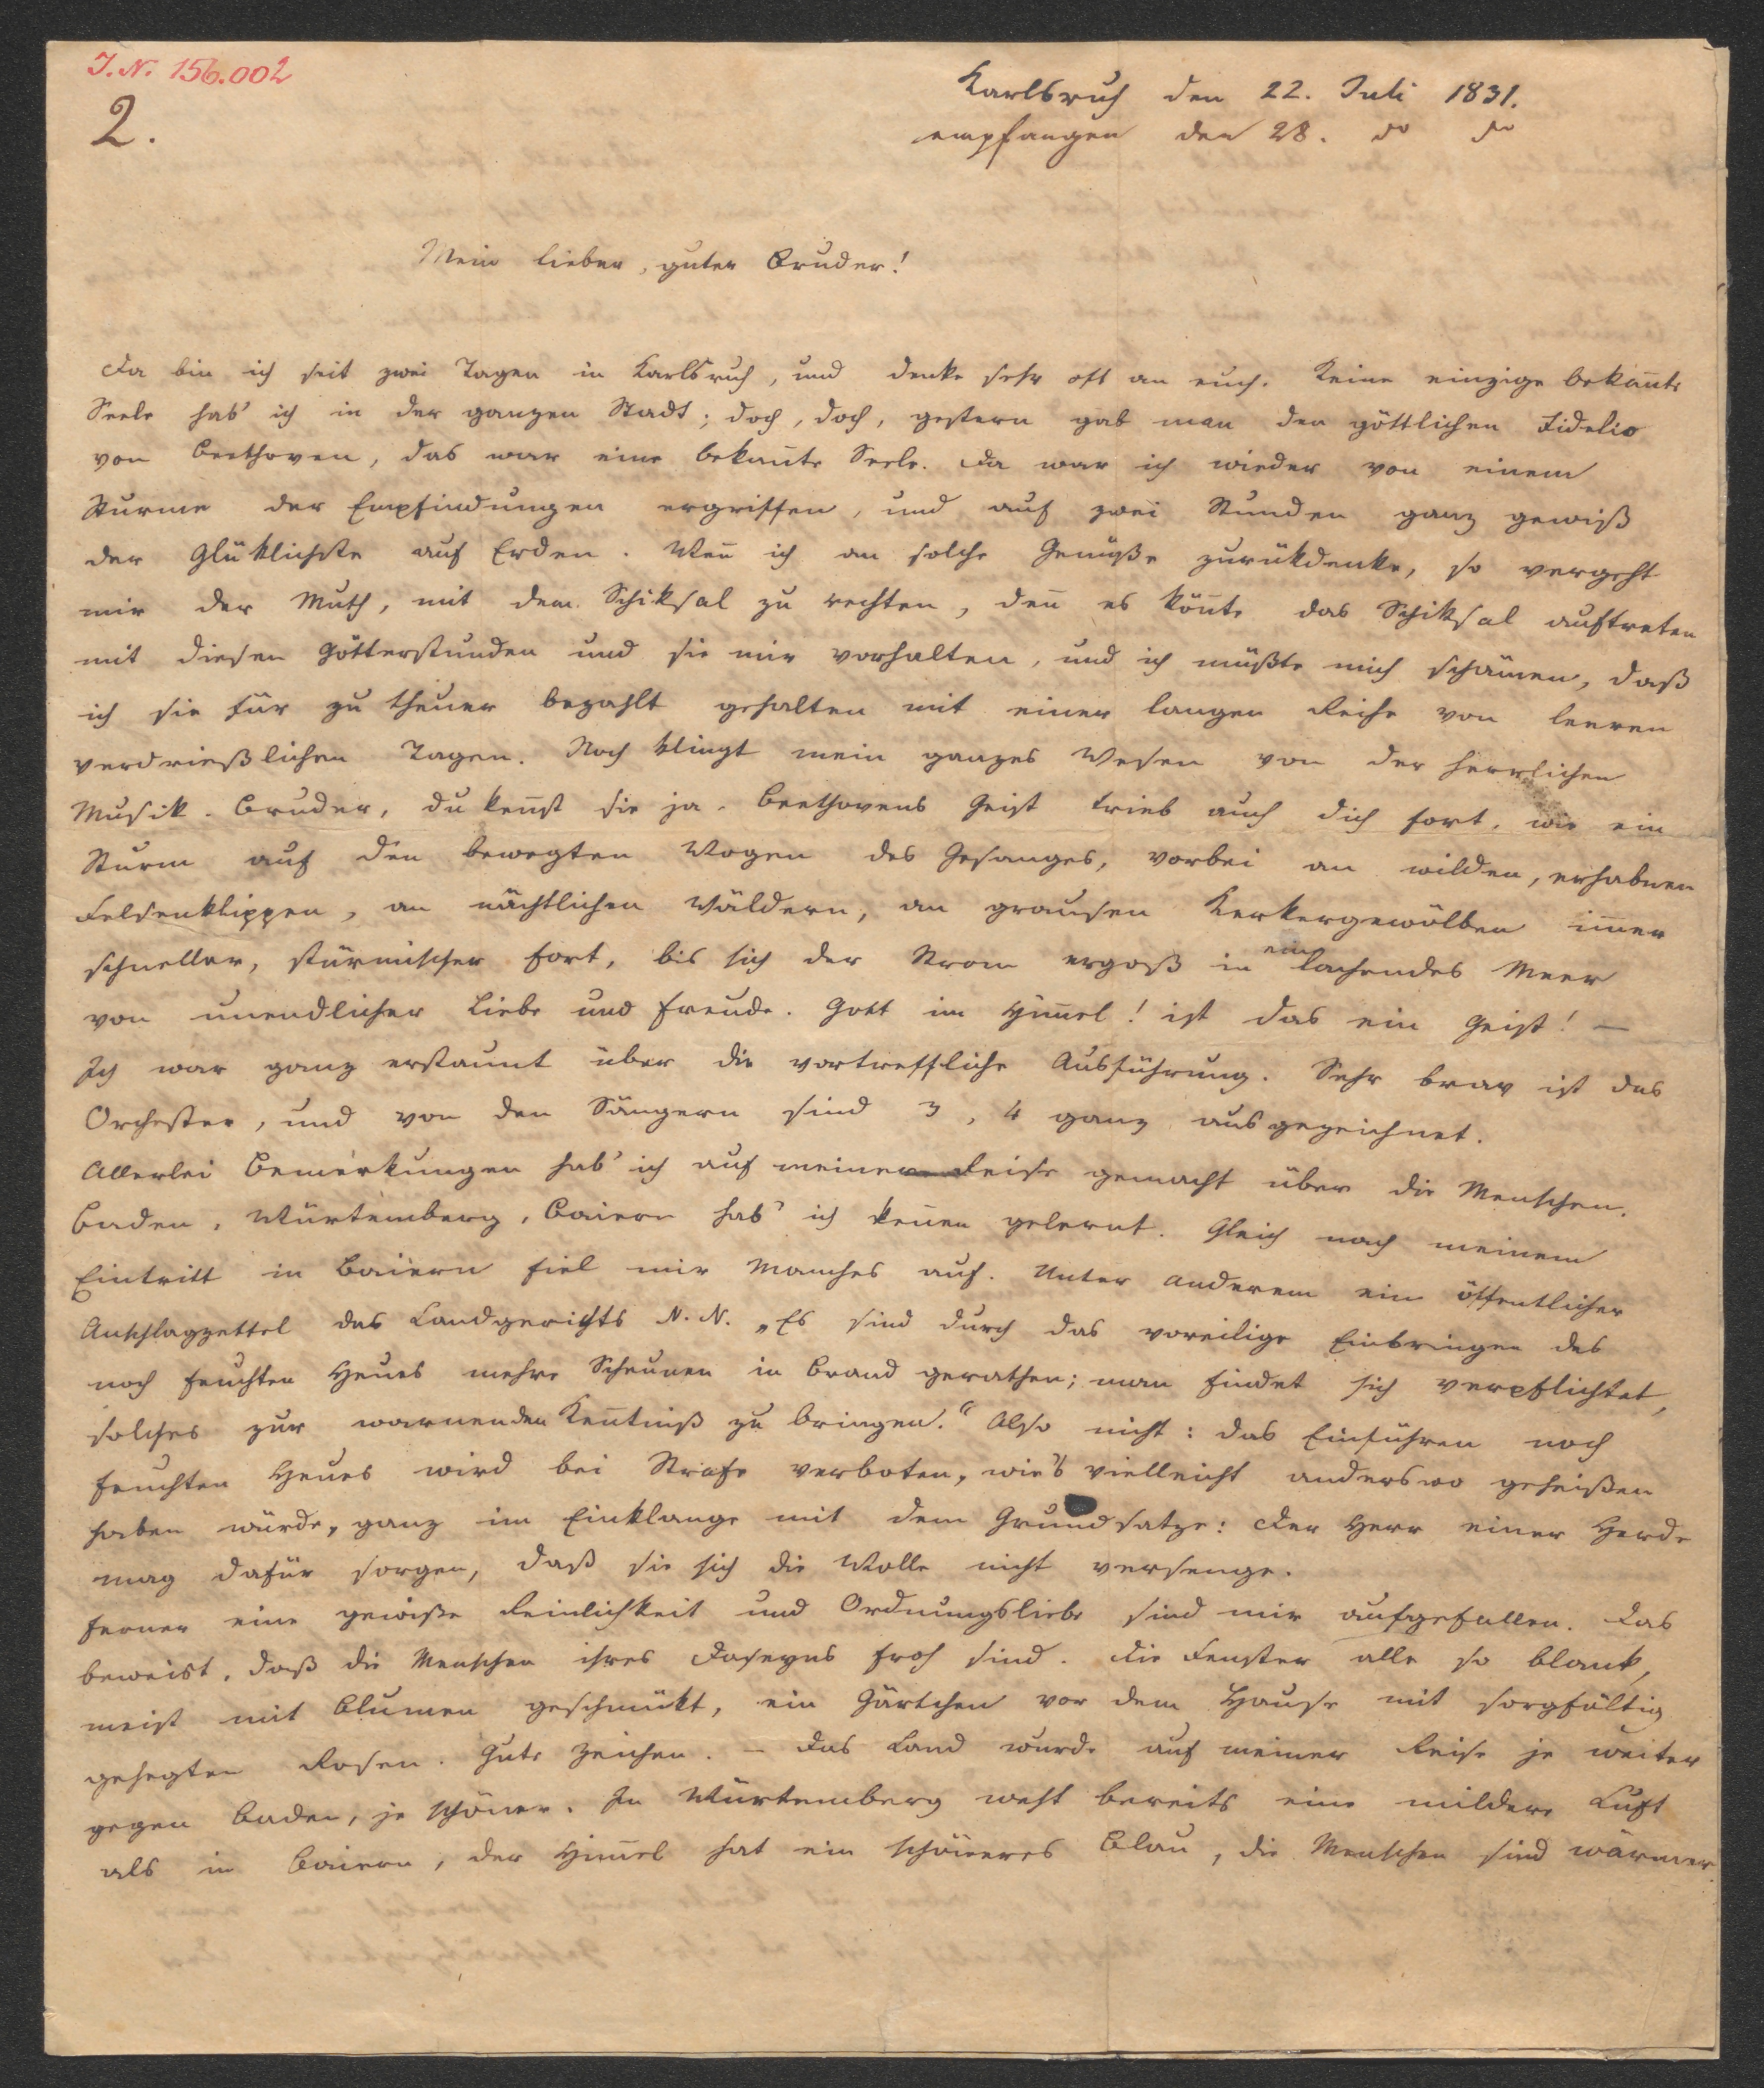 I. N. 156.002
2.
Karlsruh den 22. Juli 1831.
empfangen den 28. do do
Mein lieber, guter Bruder!
Da bin ich seit zwei Tagen in Karlsruh, und denke sehr oft an euch. Keine einzige bekan̄te
Seele hab' ich in der ganzen Stadt; doch, doch, gestern gab man den göttlichen Fidelio
von Beethoven, das war eine bekan̄te Seele. Da war ich wieder von einem
Sturme der Empfindungen ergriffen, und auf zwei Stunden ganz gewiß
der Glüklichste auf Erden. Wen̄ ich an solche Genüße zurükdenke, so vergeht
mir der Muth, mit dem Schiksal zu rechten, den̄ es kön̄te das Schiksal auftreten
mit diesen Götterstunden und sie mir vorhalten, und ich müßte mich schämen, daß
ich sie für zu theuer bezahlt gehalten mit einer langen Reihe von leeren
verdrießlichen Tagen. Noch klingt mein ganzes Wesen von der herrlichen
Musik. Bruder, du ken̄st sie ja. Beethovens Geist trieb auch dich fort, wie ein
Sturm auf den bewegten Wogen des Gesanges, vorbei an wilden, erhabnen
Felsenklippen, an nächtlichen Wäldern, an grausen Kerkergewölben im̄er
schneller, stürmischer fort, bis sich der Strom ergoß in ein lachendes Meer
von unendlicher Liebe und Freude. Gott im Him̄el! ist das ein Geist! —
Ich war ganz erstaunt über die vortreffliche Ausführung. Sehr brav ist das
Orchester, und von den Sängern sind 3, 4 ganz ausgezeichnet.
Allerlei Bemerkungen hab' ich auf meiner Reise gemacht über die Menschen.
Baden, Würtemberg, Baiern hab' ich ken̄en gelernt. Gleich nach meinem
Eintritt in Baiern fiel mir Manches auf. Unter anderem ein öffentlicher
Anschlagzettel des Landgerichts N. N. „Es sind durch das voreilige Einbringen des
noch feuchten Heues mehre Scheunen in Brand gerathen; man findet sich verpflichtet,
solches zur warnenden Ken̄tniß zu bringen.“ Also nicht: das Einführen noch
feuchten Heues wird bei Strafe verboten, wie's vielleicht anderswo geheißen
haben würde, ganz im Einklange mit dem Grundsatze: Der Herr einer Herde
mag dafür sorgen, daß sie sich die Wolle nicht versenge.
Ferner eine gewiße Reinlichkeit und Ordnungsliebe sind mir aufgefallen. Das
beweist, daß die Menschen ihres Daseyns froh sind. Die Fenster alle so blank,
meist mit Blumen geschmükt, ein Gärtchen vor dem Hause mit sorgfältig
gehegten Rosen. Gute Zeichen. — Das Land wurde auf meiner Reise je weiter
gegen Baden, je schöner. In Würtemberg weht bereits eine mildere Luft
als in Baiern, der Him̄el hat ein schöneres Blau, die Menschen sind wärmer.